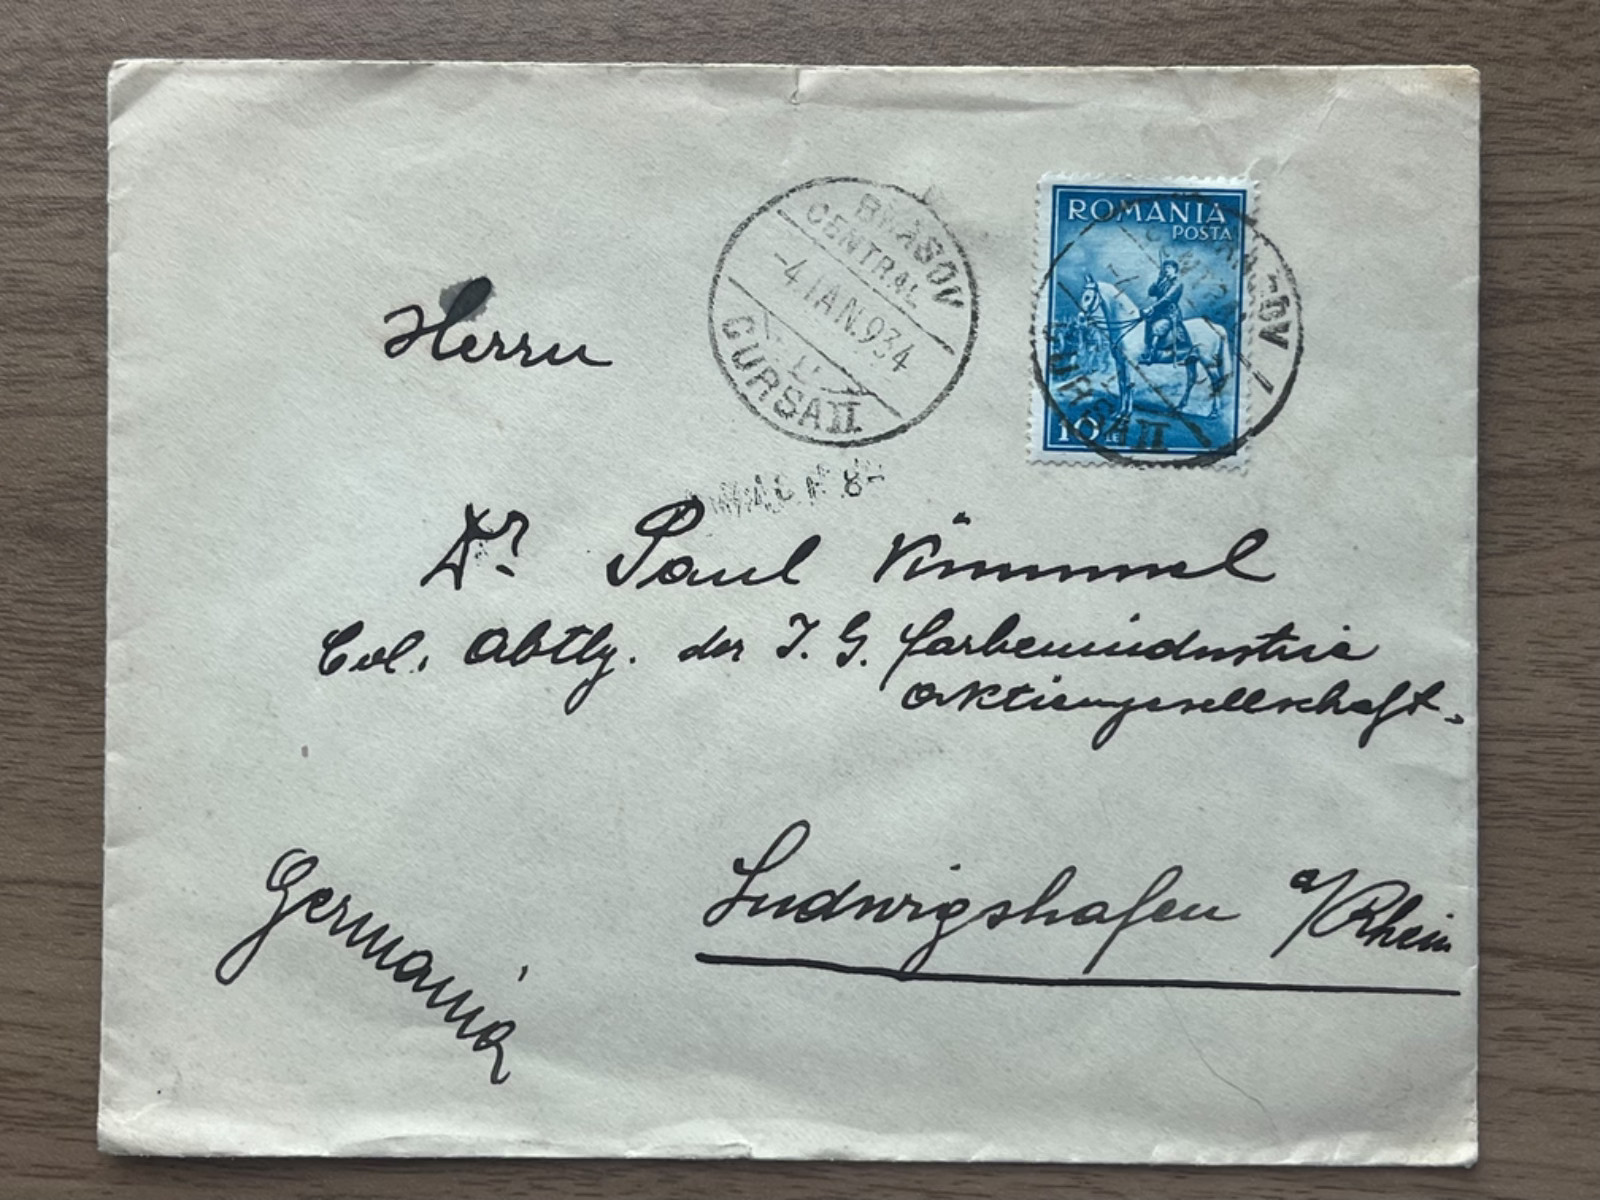 BRASOV
CENTRAL
-4 IAN.934
CURSA II
ROMANIA
POSTA
10 LEI
CURSA II
Herrn
Dr. Paul Kümmel
Col. Abtlg. der I. G. Farbenindustrie
Aktiengesellschaft.
Ludwigshafen a/Rhein
Germania